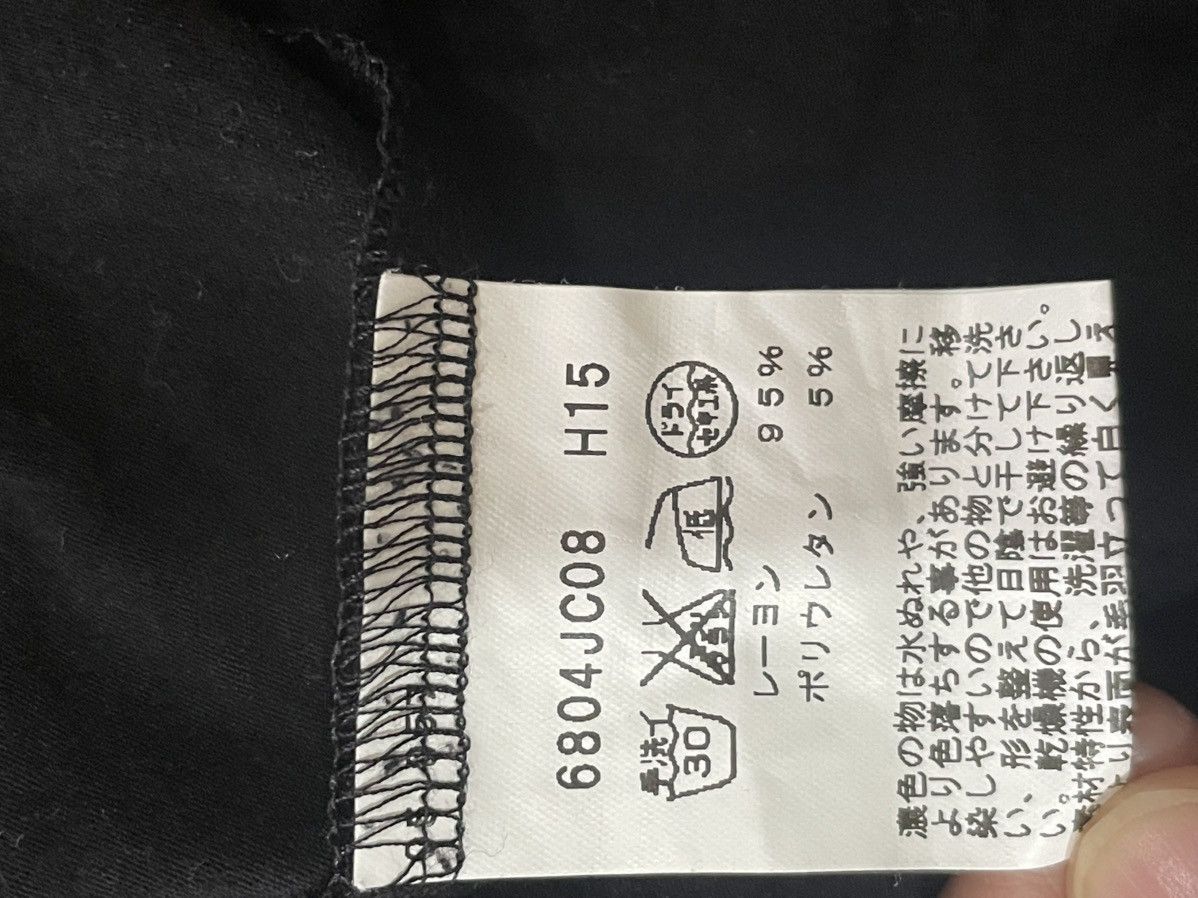 6804JC08 H15
手洗 30 エンソサラシ 低 ドライ セキユ系
レーヨン 95%
ポリウレタン 5%
濃色の物は水ぬれや、強い摩擦に
より色落ちする事があります。移
染しやすいので他の物と分けて洗
い、形を整えて日陰で干して下さ
い。乾燥機の使用はお避け下さい。
素材特性から、洗濯等の繰り返し
表面が毛羽立って白く